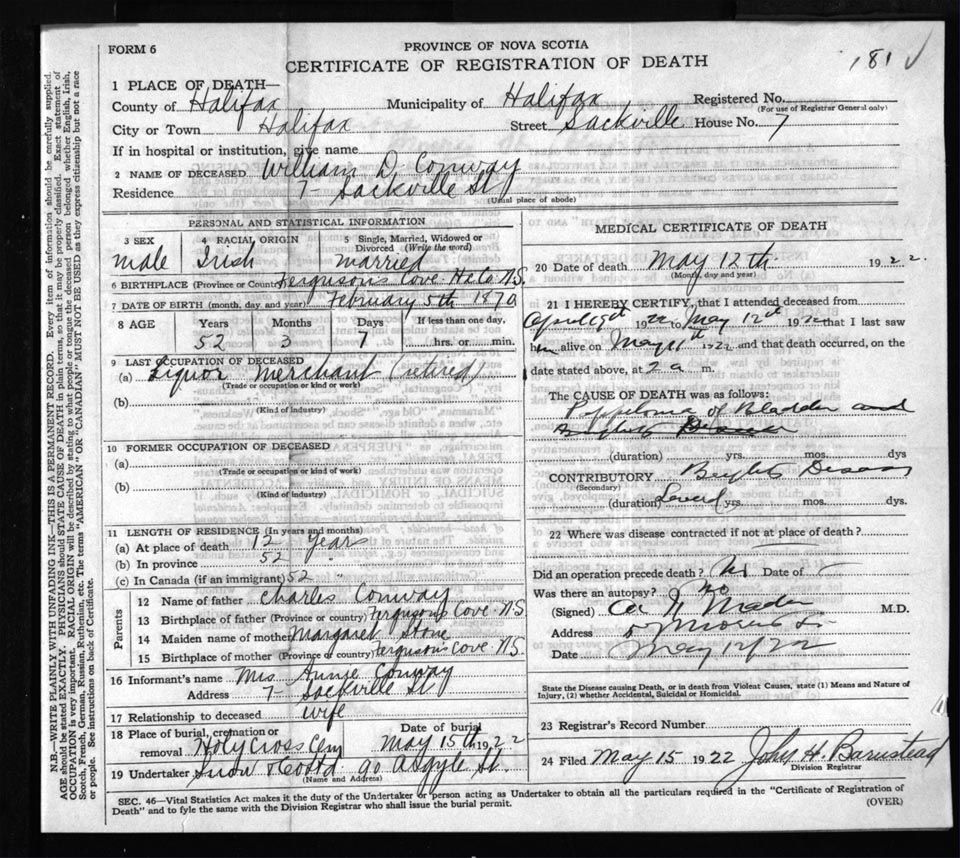 FORM 6
PROVINCE OF NOVA SCOTIA
CERTIFICATE OF REGISTRATION OF DEATH
181 ✓
1 PLACE OF DEATH—
County of Halifax Municipality of Halifax Registered No.
(For use of Registrar General only)
City or Town Halifax Street Sackville House No. 7
If in hospital or institution, give name
2 NAME OF DECEASED William D. Conway
Residence 7 - Sackville St
(Usual place of abode)
PERSONAL AND STATISTICAL INFORMATION
3 SEX 4 RACIAL ORIGIN 5 Single, Married, Widowed or Divorced (Write the word)
male Irish married
6 BIRTHPLACE (Province or Country) Fergusons Cove Hfx Co N.S.
7 DATE OF BIRTH (month, day, and year) February 5th 1870
8 AGE Years Months Days If less than one day.
52 3 7 hrs. or min.
9 LAST OCCUPATION OF DECEASED
(a) Liquor merchant (retired)
(Trade or occupation or kind or work)
(b)
(Kind of industry)
10 FORMER OCCUPATION OF DECEASED
(a)
(Trade or occupation or kind of work)
(b)
(Kind of industry)
11 LENGTH OF RESIDENCE (In years and months)
(a) At place of death 12 years
(b) In province 52 "
(c) In Canada (if an immigrant) 52 "
Parents
12 Name of father Charles Conway
13 Birthplace of father (Province or country) Fergusons Cove N.S.
14 Maiden name of mother Margaret Stone
15 Birthplace of mother (Province or country) Fergusons Cove N.S.
16 Informant's name Mrs Annie Conway
Address 7 - Sackville St
17 Relationship to deceased wife
18 Place of burial, cremation or removal Holy Cross Cem Date of burial May 15th 1922
19 Undertaker Snow & Co Ltd 90 Argyle St.
(Name and Address)
MEDICAL CERTIFICATE OF DEATH
20 Date of death May 12th 1922.
(Month, day and year)
21 I HEREBY CERTIFY, that I attended deceased from
April 1922 to May 12th 1922 that I last saw
him alive on May 11th 1922 and that death occurred, on the
date stated above, at 2 a m.
The CAUSE OF DEATH was as follows:
Papiloma of Bladder and
Brights Disease
(duration) yrs. mos. dys
CONTRIBUTORY Brights Disease
(Secondary)
(duration) Several yrs. mos. dys.
22 Where was disease contracted if not at place of death?
Did an operation precede death? Date of
Was there an autopsy? No
(Signed) Mader M.D.
Address Morris St.
Date May 12/22
State the Disease causing Death, or in death from Violent Causes, state (1) Means and Nature of
Injury, (2) whether Accidental, Suicidal or Homicidal.
23 Registrar's Record Number
24 Filed May 15 1922 John H. Barnstead
Division Registrar
SEC. 46—Vital Statistics Act makes it the duty of the Undertaker or person acting as Undertaker to obtain all the particulars required in the "Certificate of Registration of
Death" and to fyle the same with the Division Registrar who shall issue the burial permit.
(OVER)
N.B.—WRITE PLAINLY WITH UNFADING INK—THIS IS A PERMANENT RECORD. Every item of information should be carefully supplied.
AGE should be stated EXACTLY. PHYSICIANS should STATE CAUSE OF DEATH in plain terms, so that it may be properly classified. Exact statement of
OCCUPATION is very important. RACIAL ORIGIN will be described by stating to what people or tongue the deceased person belonged whether English, Irish,
Scotch, French, German, Russian, Ruthenian, etc. The terms "AMERICAN" OR "CANADIAN" MUST NOT BE USED as they express citizenship but not a race
or people. See instructions on back of Certificate.